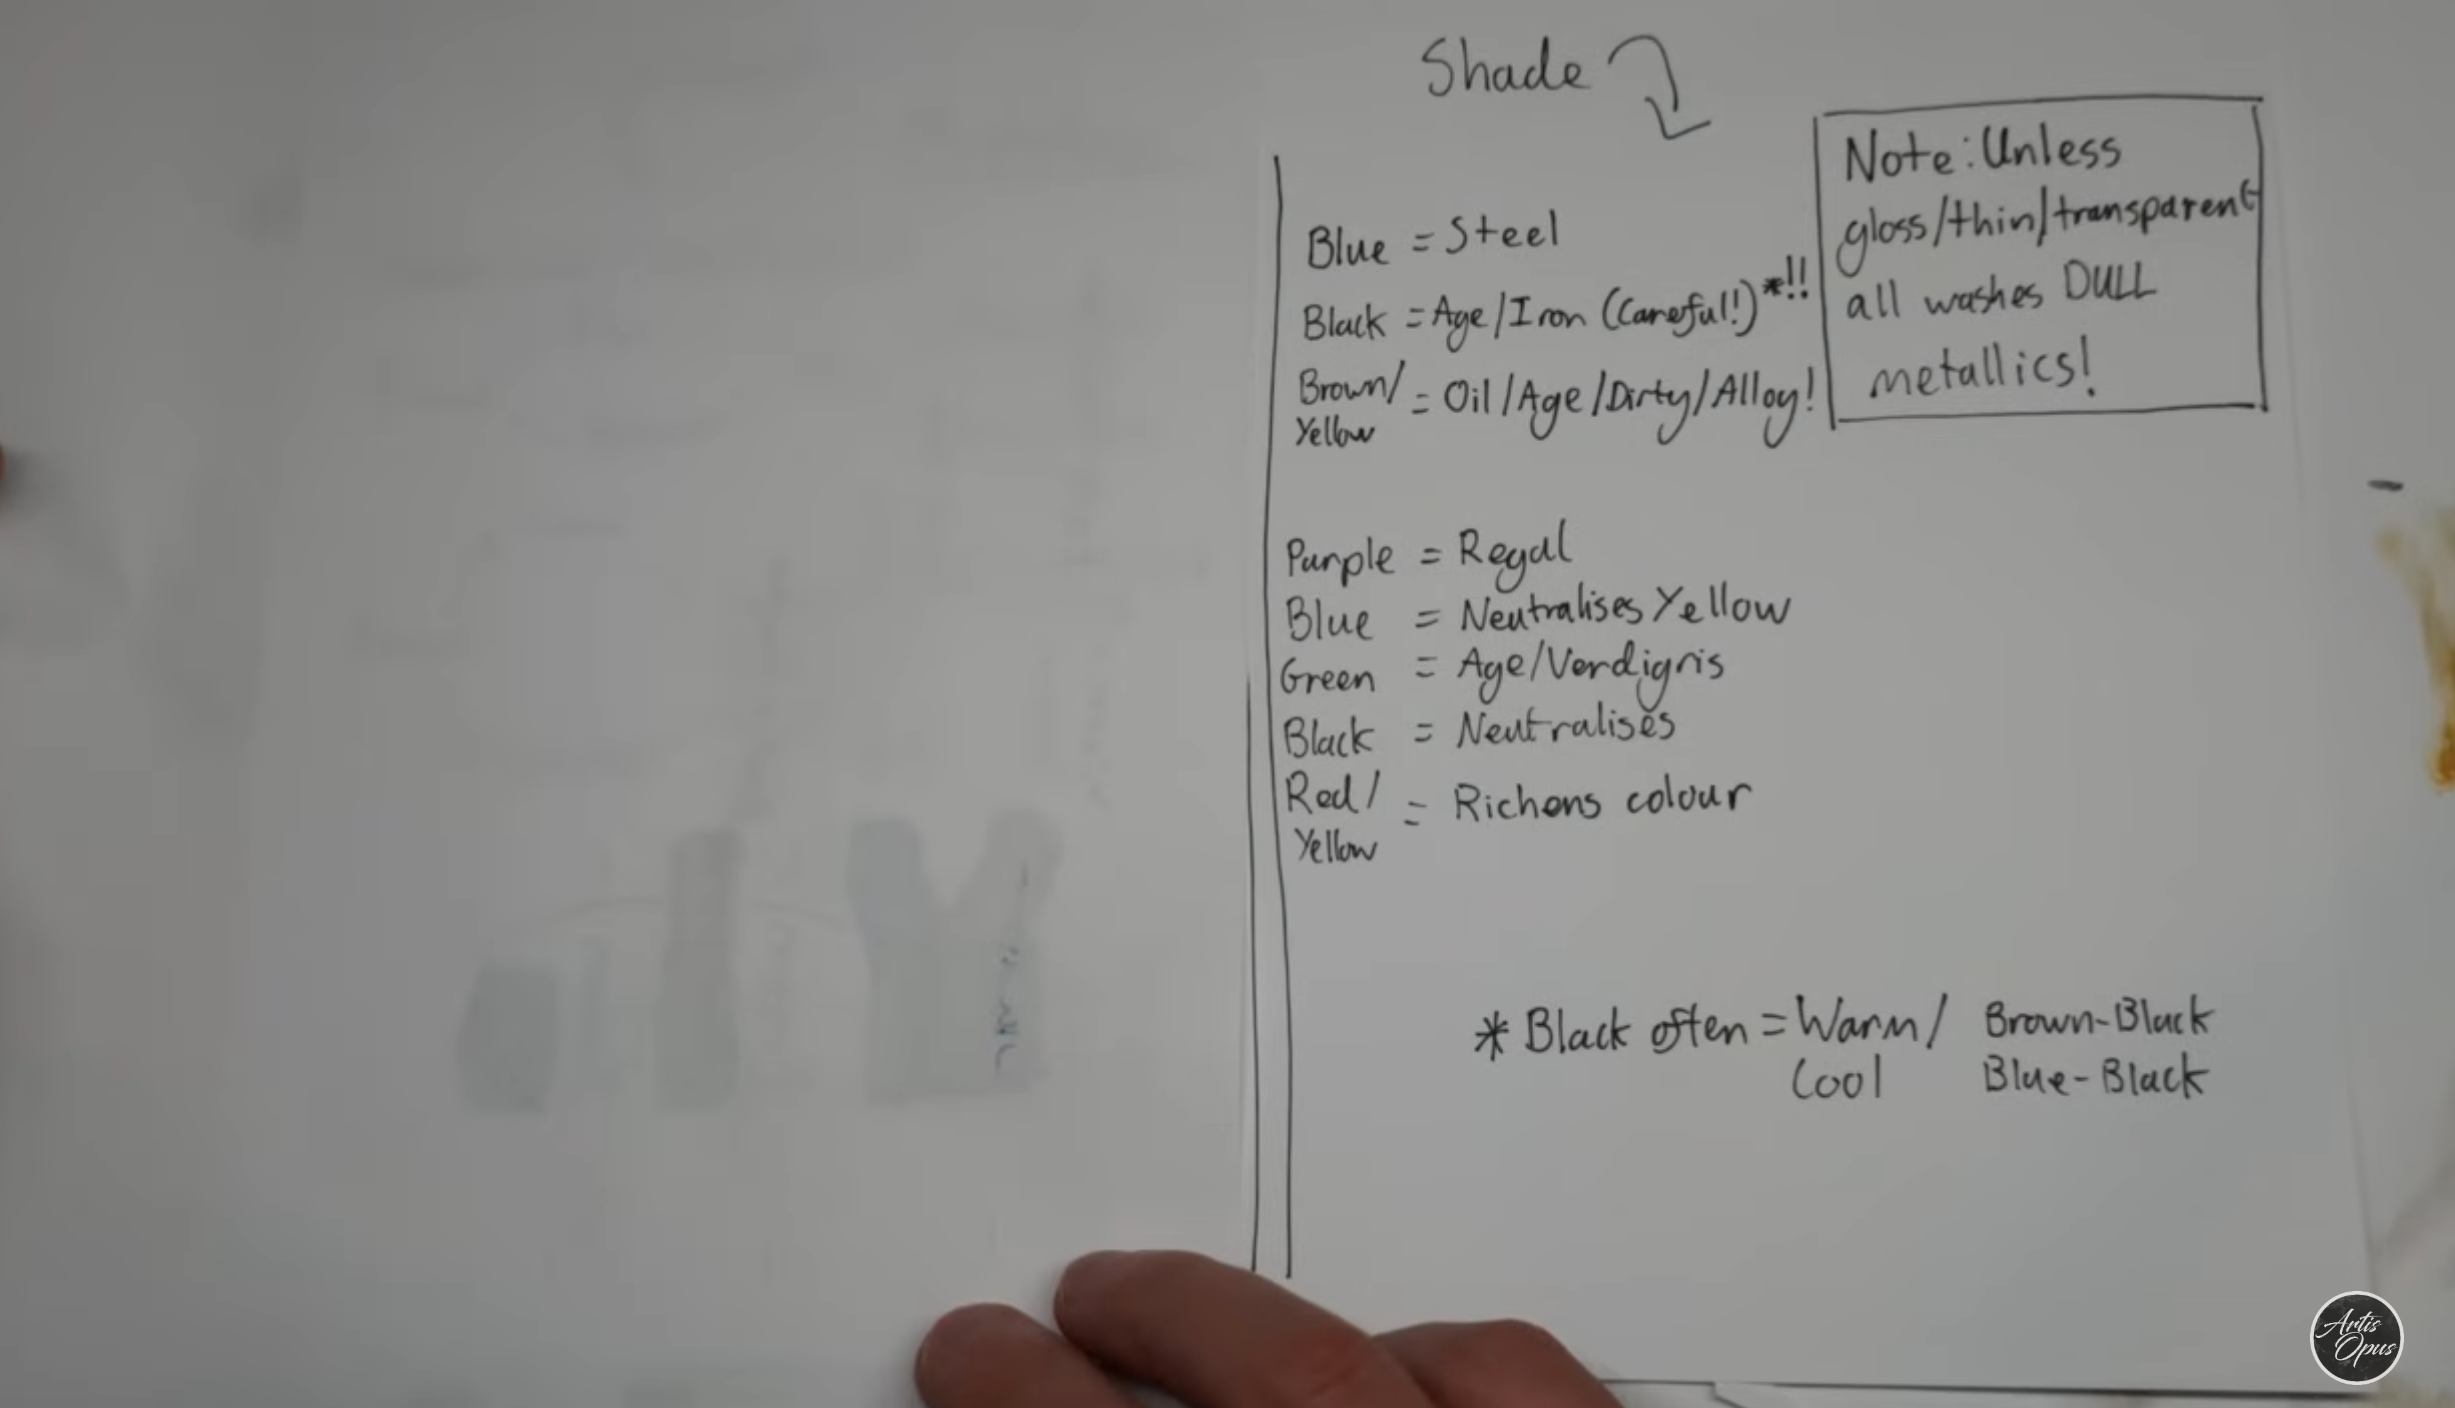 Shade
Note: Unless
gloss/thin/transparent
all washes DULL
metallics!
Blue = Steel
Black = Age/Iron (Careful!)*!!
Brown/
Yellow = Oil/Age/Dirty/Alloy!
Purple = Regal
Blue = Neutralises Yellow
Green = Age/Verdigris
Black = Neutralises
Red/
Yellow = Richens colour
* Black often = Warm/ Brown-Black
Cool Blue-Black
Artis
Opus